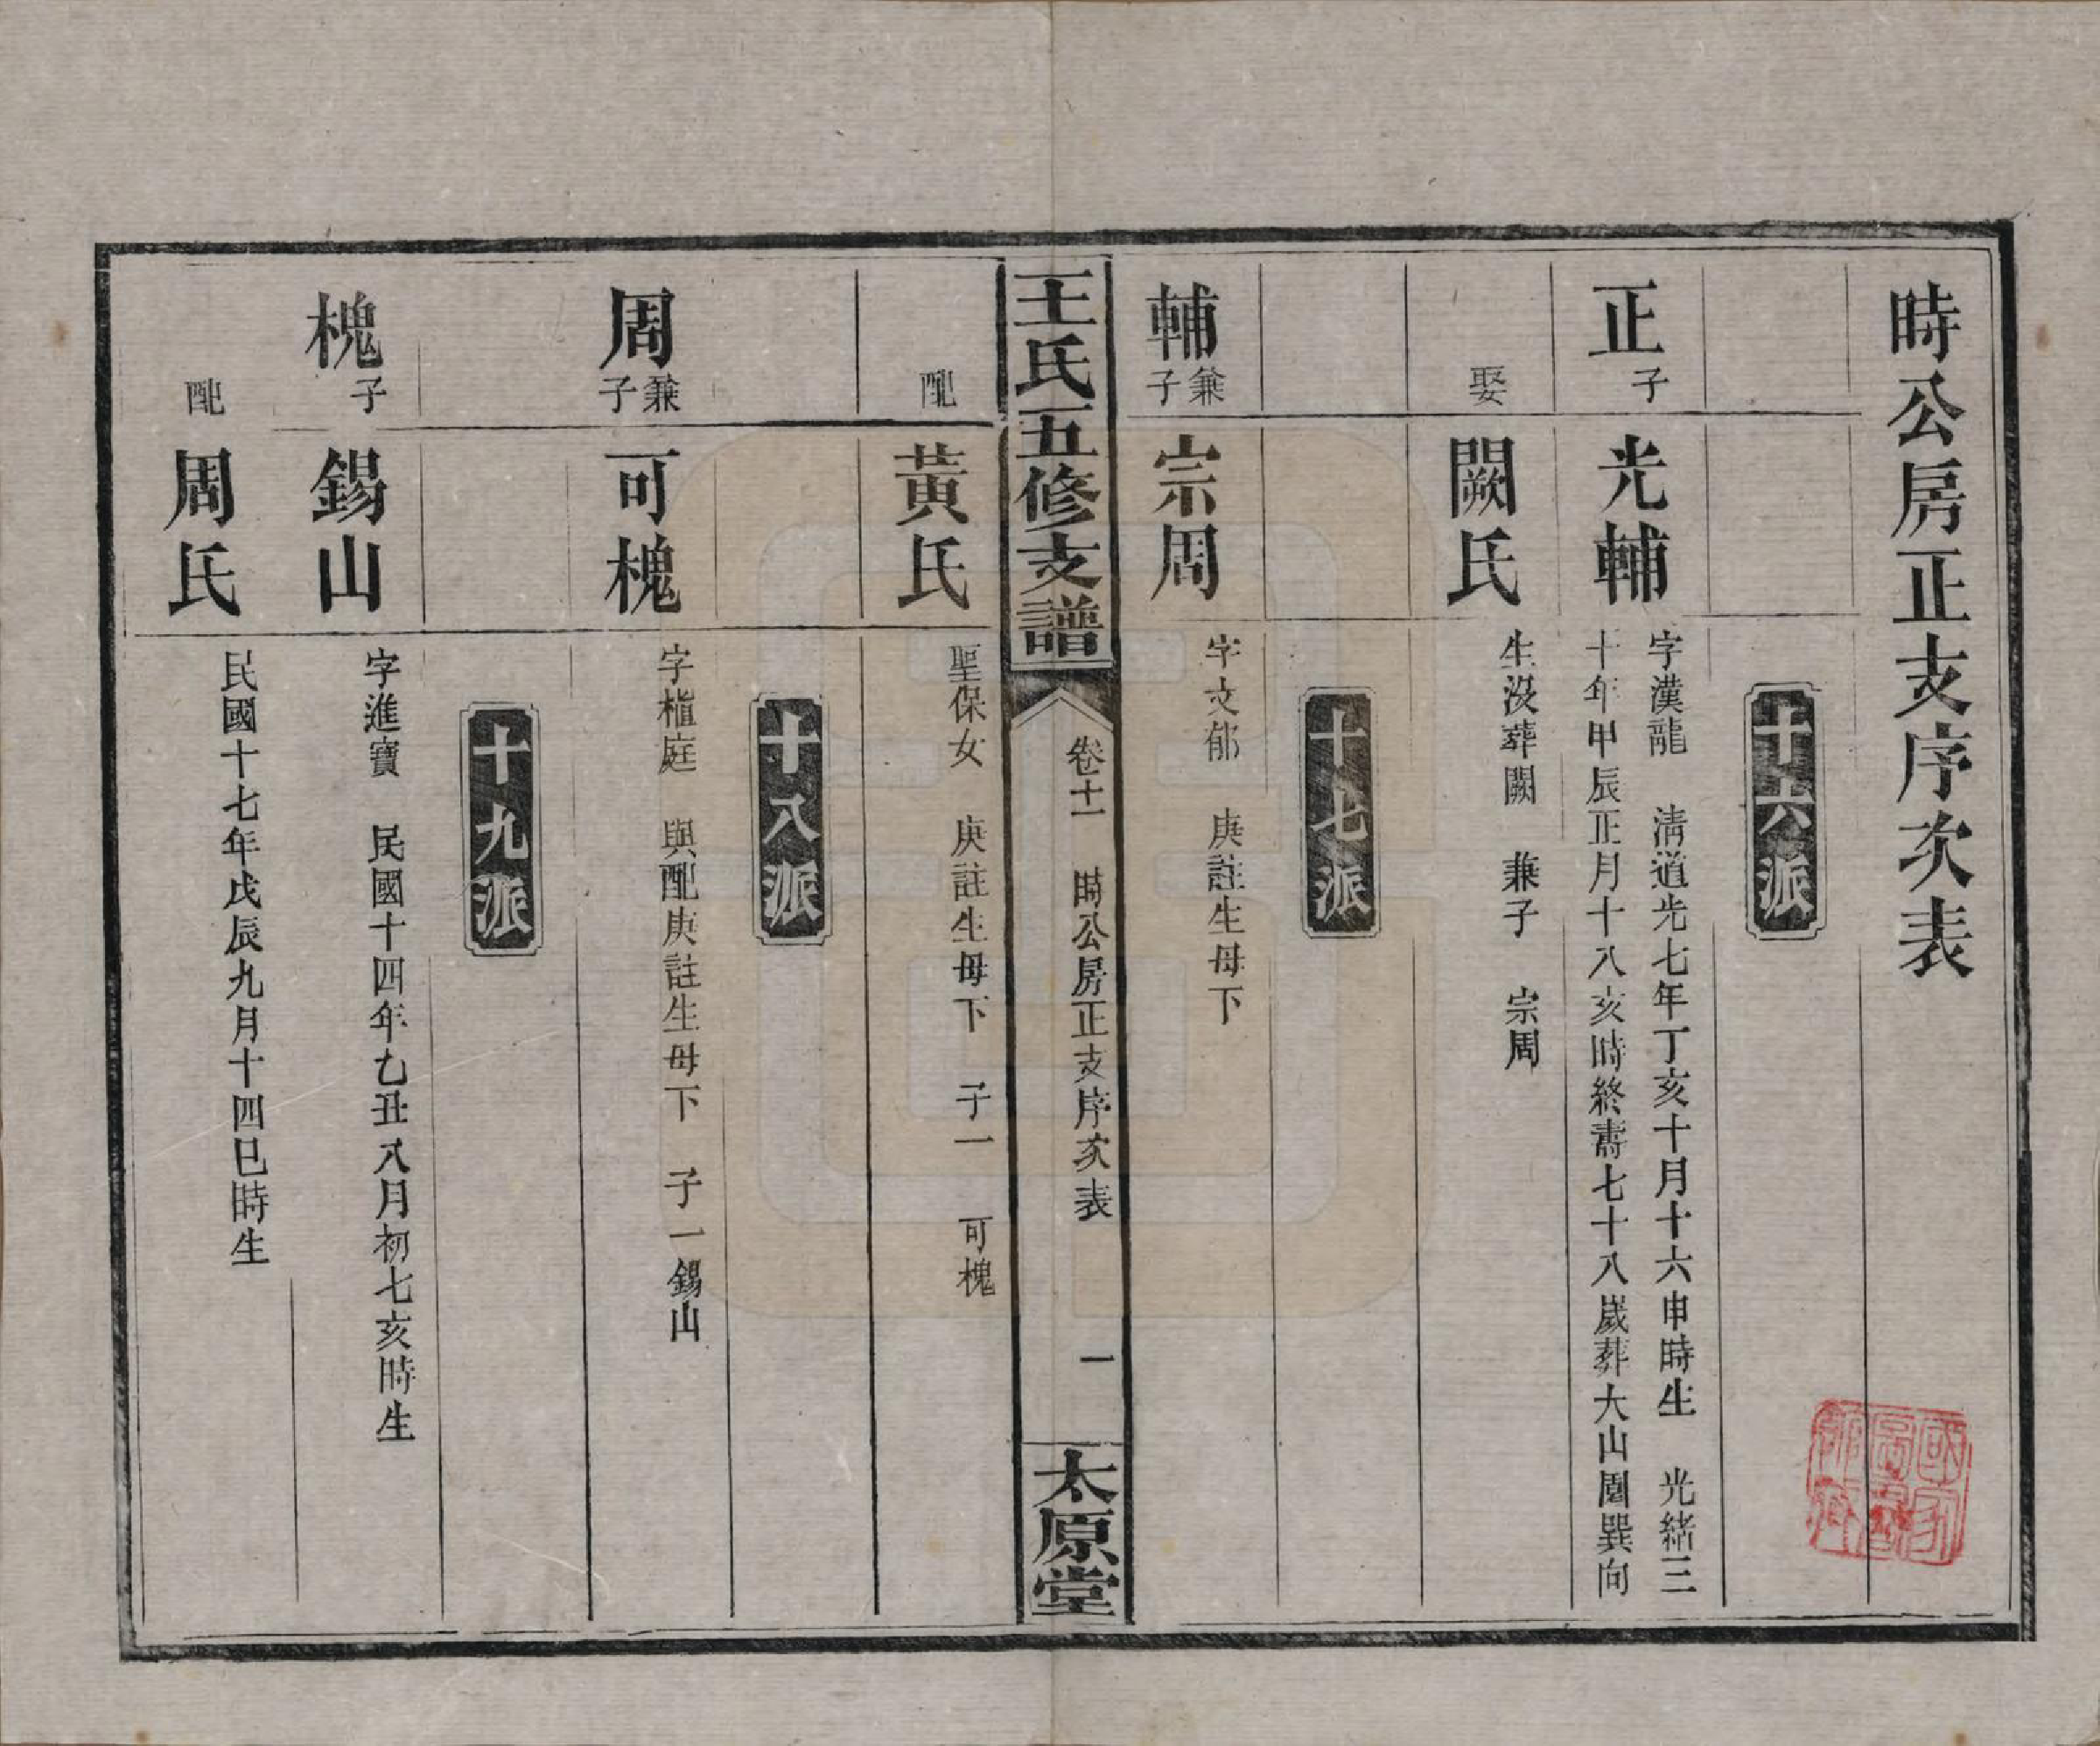 時公房正支序次表
十六派
正子 光輔
字漢龍 淸道光七年丁亥十月十六申時生 光緒三
十年甲辰正月十八亥時終壽七十八歲葬大山園巽向
娶 闕氏
生沒葬闕 兼子 宗周
十七派
輔兼子 宗周
字文郁 庚註生母下
王氏五修支譜
卷十一 時公房正支序次表 一
太原堂
配 黃氏
聖保女 庚註生母下 子一 可槐
十八派
周兼子 可槐
字植庭 與配庚註生母下 子一錫山
十九派
槐子 錫山
字進寶 民國十四年乙丑八月初七亥時生
配 周氏
民國十七年戊辰九月十四巳時生